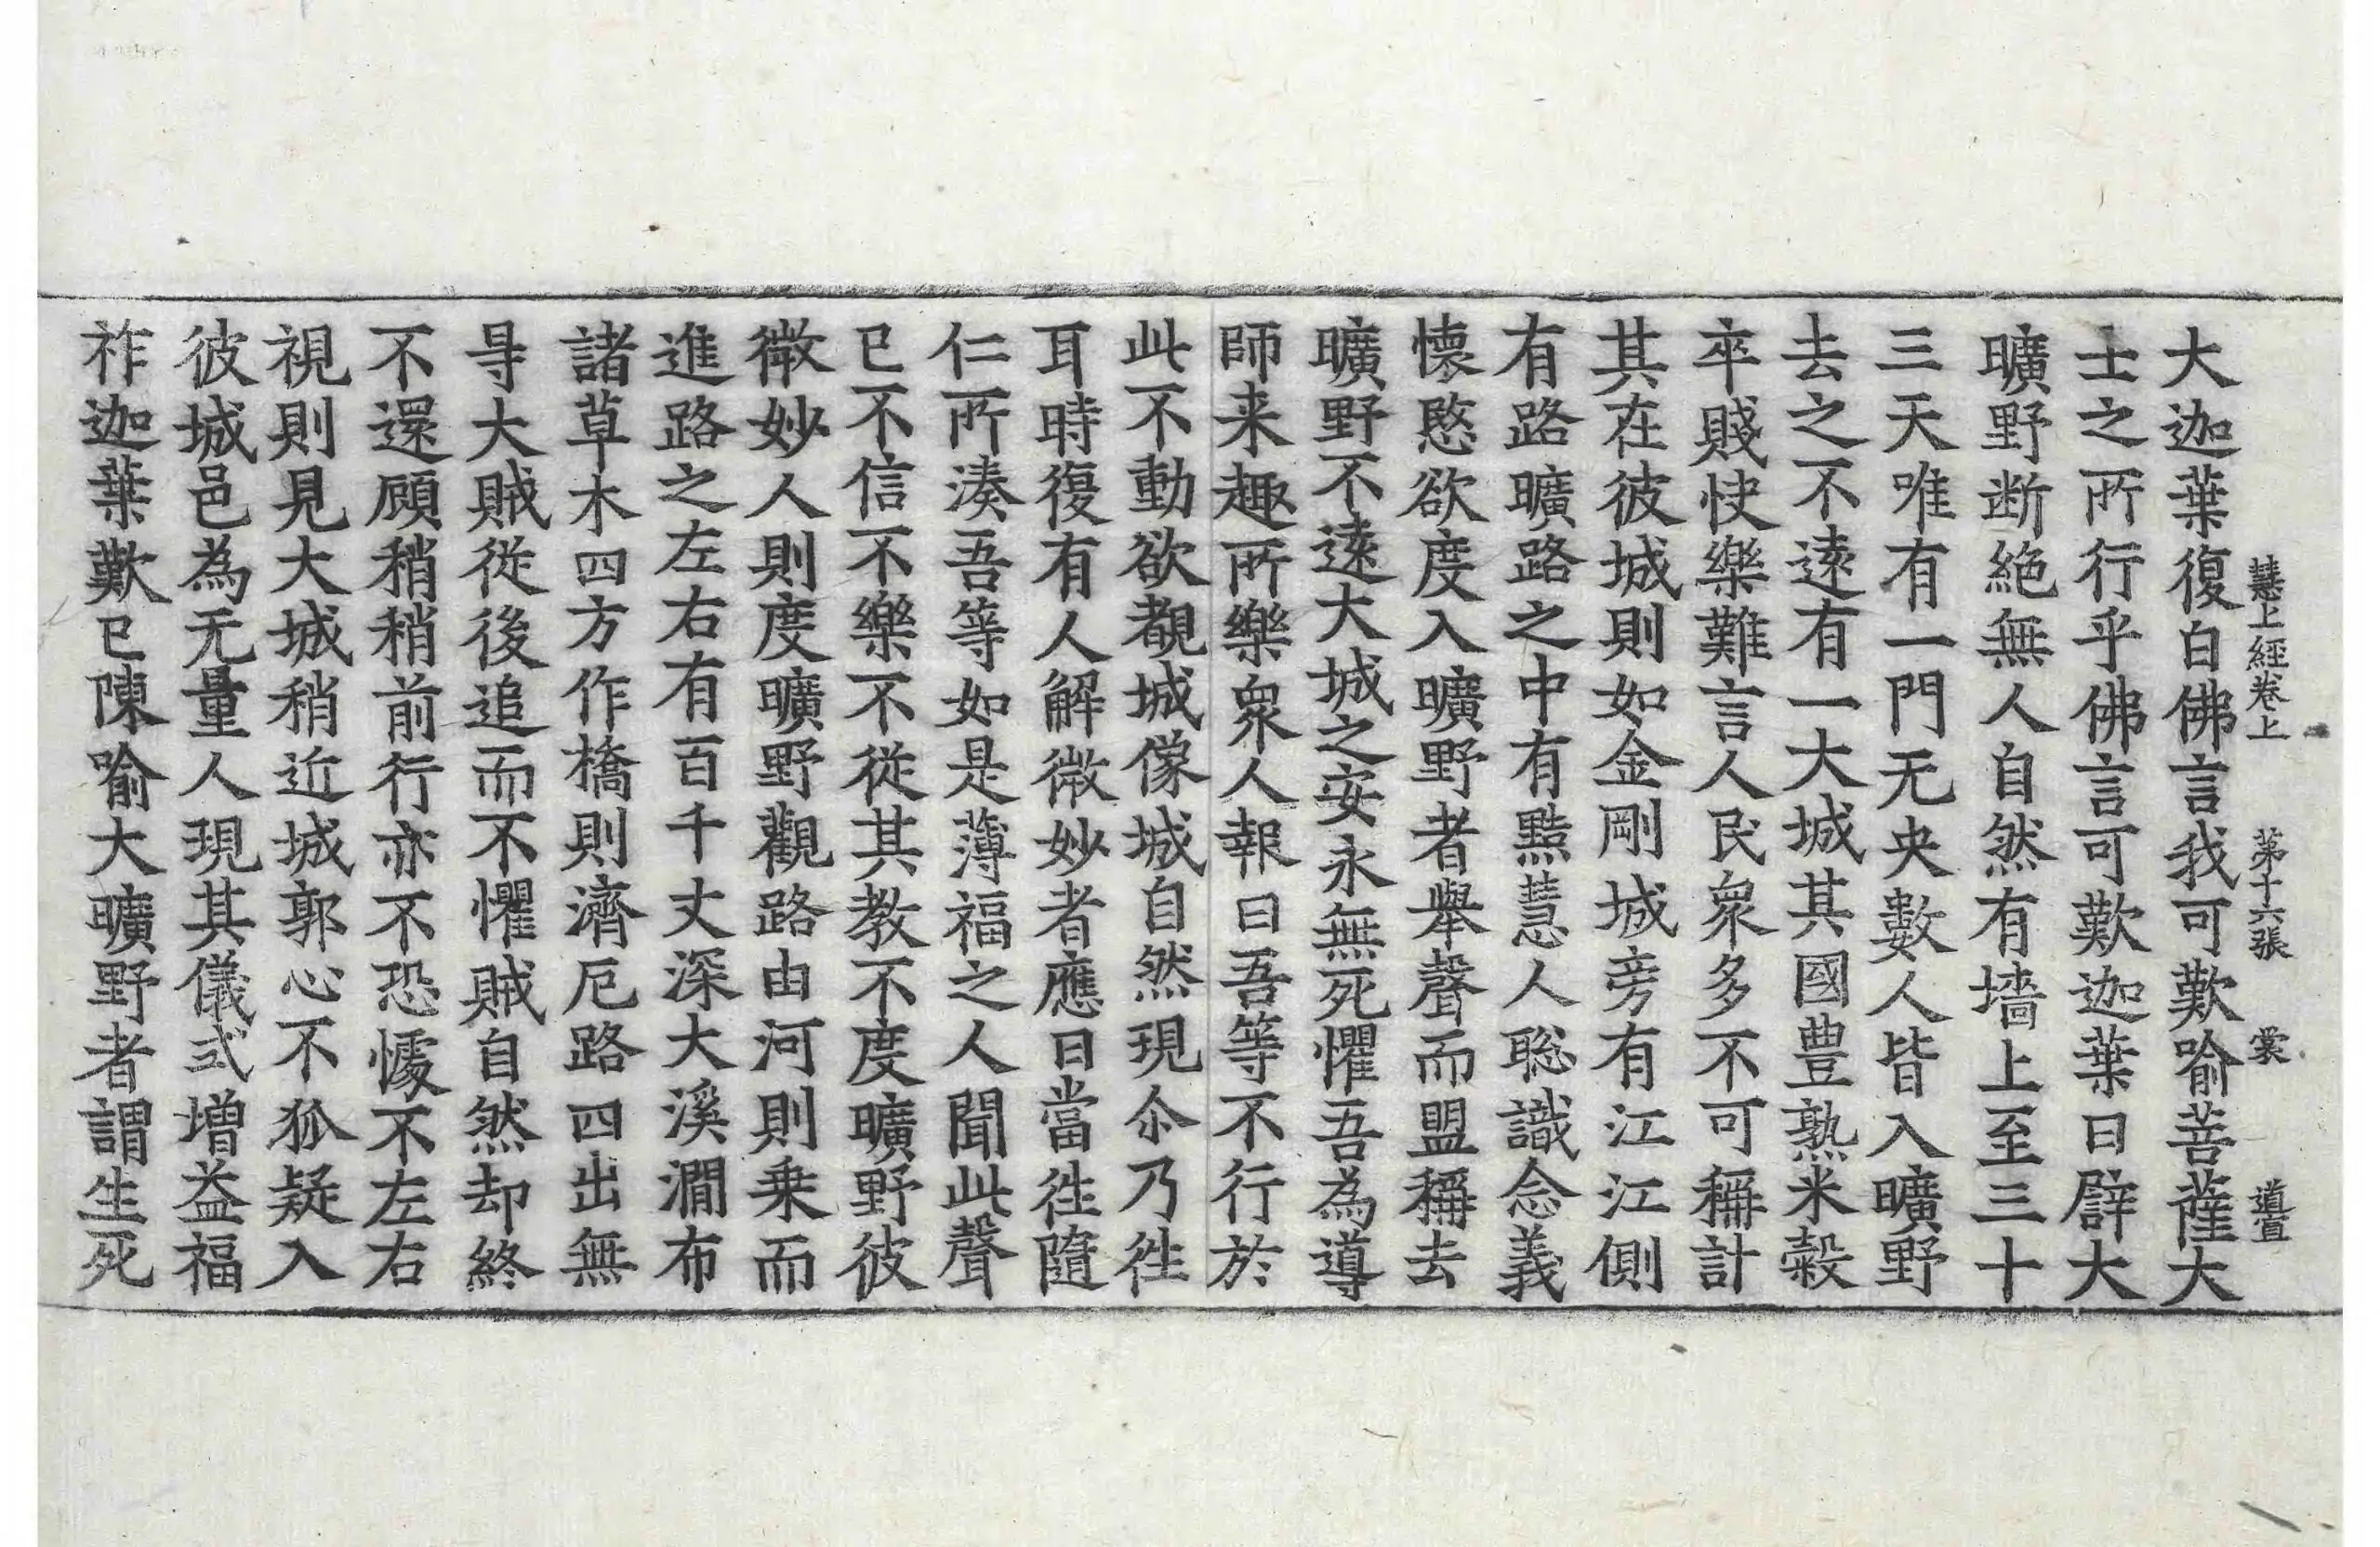 慧上經卷上 第十六張 裳 道宣
大迦葉復白佛言我可歎喻菩薩大
士之所行乎佛言可歎迦葉曰辟大
曠野断絶無人自然有墻上至三十
三天唯有一門无央數人皆入曠野
去之不遠有一大城其國豊熟米糓
卒賤快樂難言人民衆多不可稱計
其在彼城則如金剛城旁有江江側
有路曠路之中有黠慧人聡識念義
懷愍欲度入曠野者舉聲而盟稱去
曠野不遠大城之安永無死懼吾為導
師来趣所樂衆人報曰吾等不行於
此不動欲覩城像城自然現尒乃徃
耳時復有人解微妙者應曰當徃隨
仁所湊吾等如是薄福之人聞此聲
已不信不樂不從其教不度曠野彼
微妙人則度曠野觀路由河則乗而
進路之左右有百千丈深大溪澗布
諸草木四方作橋則濟厄路四出無
㝵大賊從後追而不懼賊自然却終
不還顧稍稍前行亦不恐懅不左右
視則見大城稍近城郭心不狐疑入
彼城邑為无量人現其儀式増益福
祚迦葉歎已陳喻大曠野者謂生死